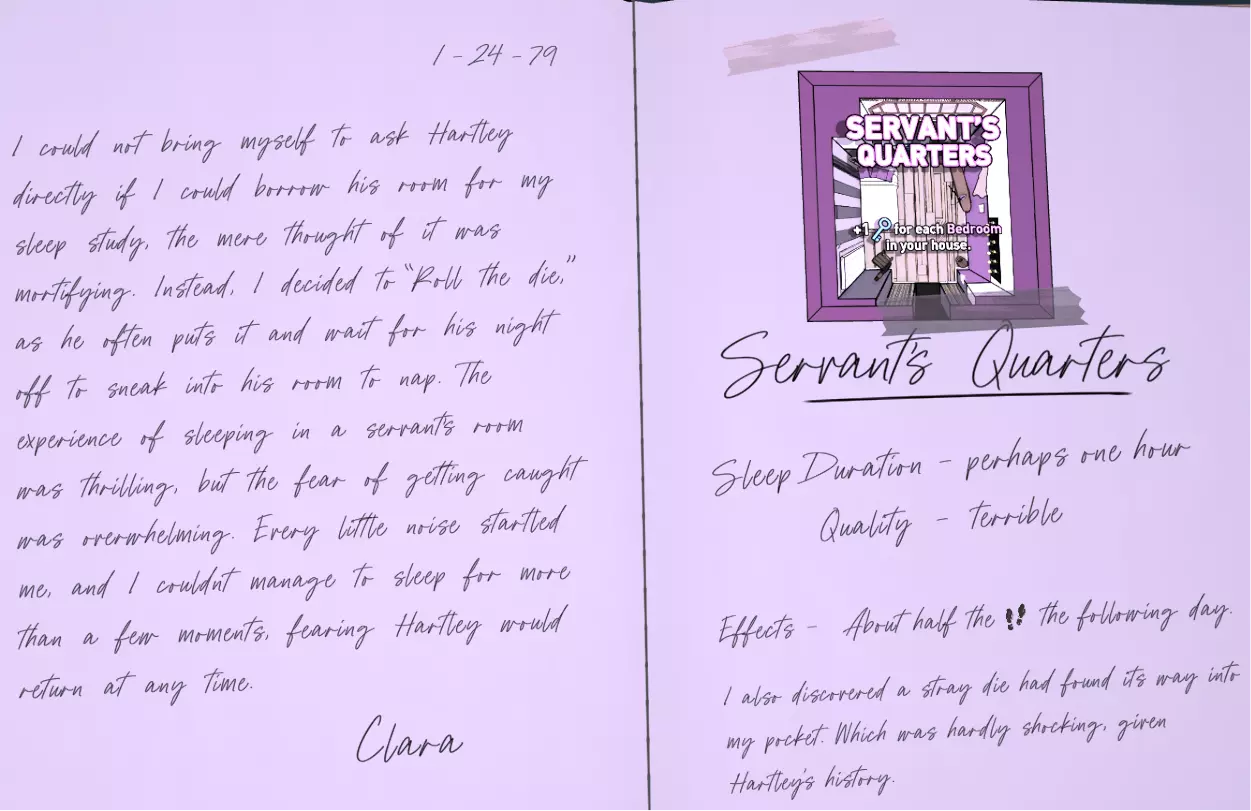 1-24-79
I could not bring myself to ask Hartley
directly if I could borrow his room for my
sleep study, the mere thought of it was
mortifying. Instead, I decided to “Roll the die,”
as he often puts it and wait for his night
off to sneak into his room to nap. The
experience of sleeping in a servant's room
was thrilling, but the fear of getting caught
was overwhelming. Every little noise startled
me, and I couldn't manage to sleep for more
than a few moments, fearing Hartley would
return at any time.
Clara
SERVANT'S
QUARTERS
+1 for each Bedroom
in your house.
Servant's Quarters
Sleep Duration - perhaps one hour
Quality - terrible
Effects - About half the the following day.
I also discovered a stray die had found its way into
my pocket. Which was hardly shocking, given
Hartley's history.